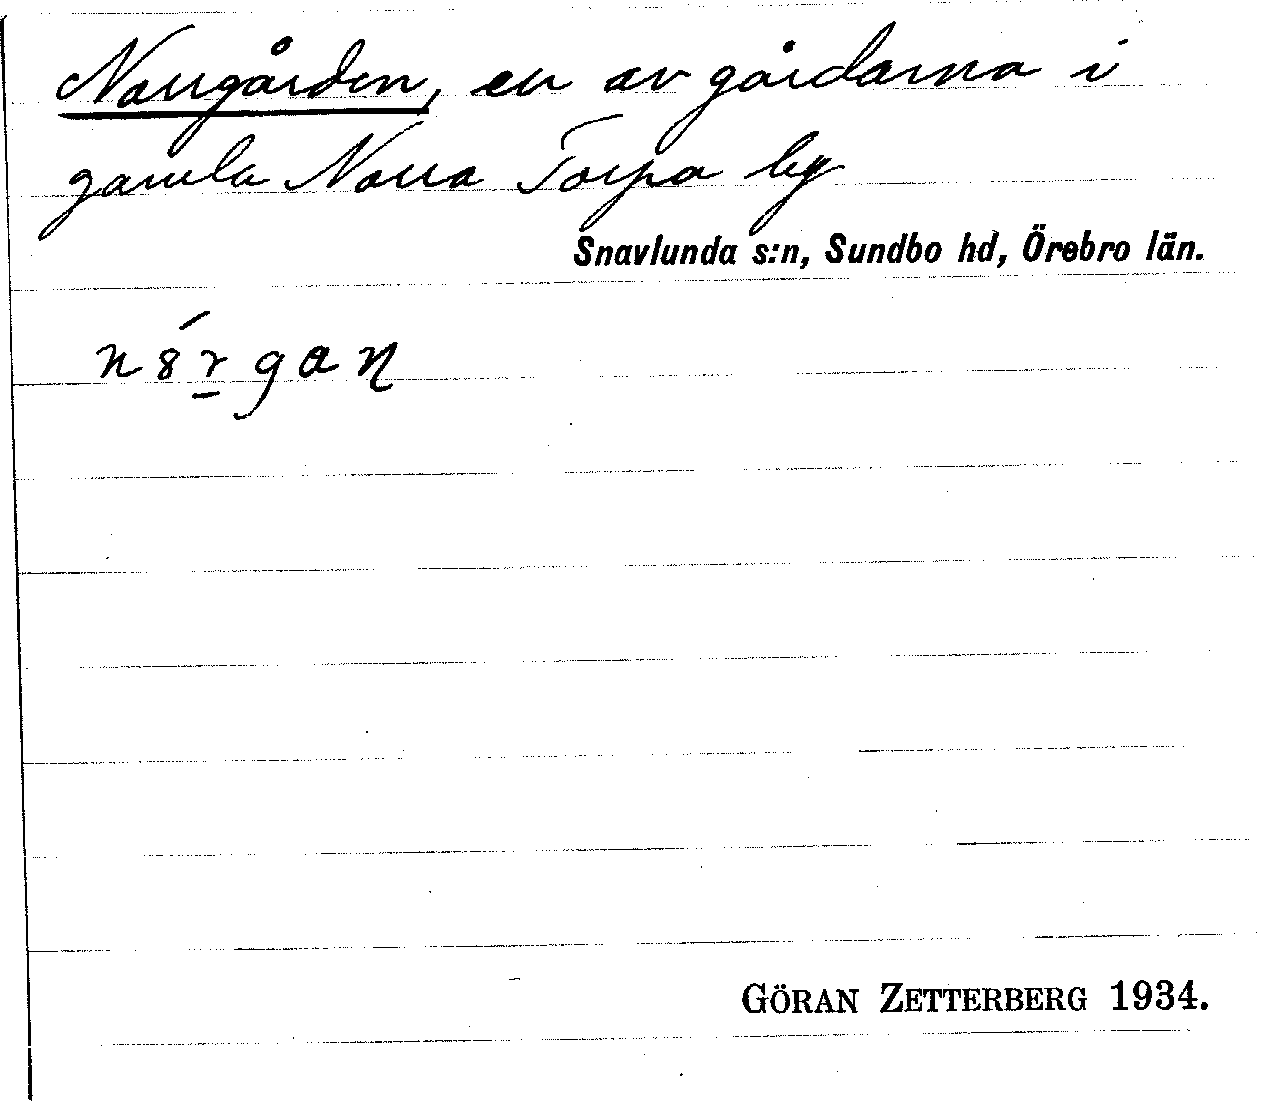 Norrgården, en av gårdarna i
gamla Norra Torpa by
Snavlunda s:n, Sundbo hd, Örebro län.
n8́r̠gaɳ
GÖRAN ZETTERBERG 1934.